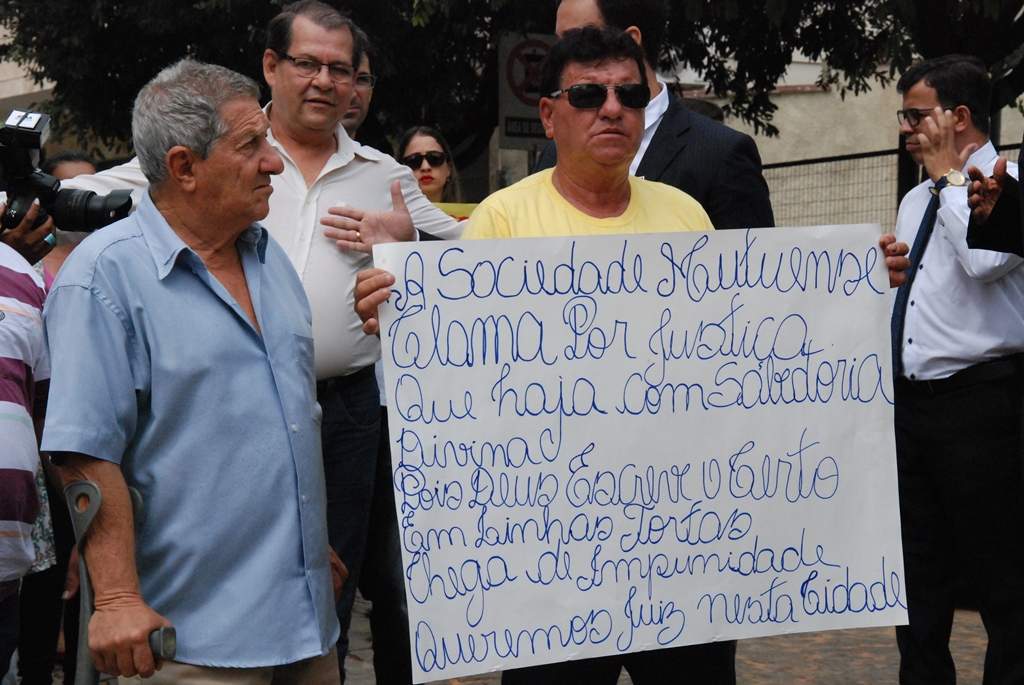 A Sociedade Mutuense
Clama Por Justiça
Que haja com Sabedoria
Divina
Pois Deus Escreve o Certo
Em Linhas Tortas
Chega de Impunidade
Queremos Juiz nesta Cidade